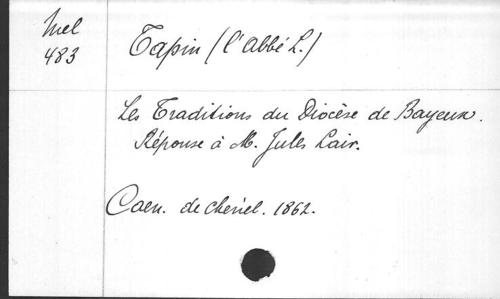 Mel
483
Tapin (l'abbé L.)
Les Traditions du Diocèse de Bayeux.
Réponse à M. Jules Lair.
Caen. de Chénel. 1862.